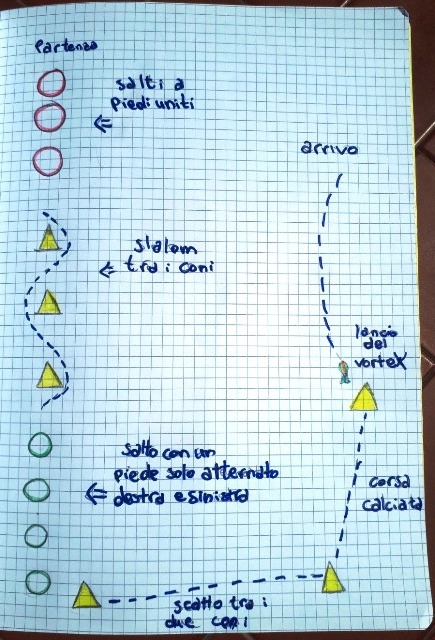 Partenza
salti a
piedi uniti
arrivo
slalom
tra i coni
lancio
del
vorteX
salto con un
piede solo alternato
destra e sinistra
corsa
calciata
scatto tra i
due coni